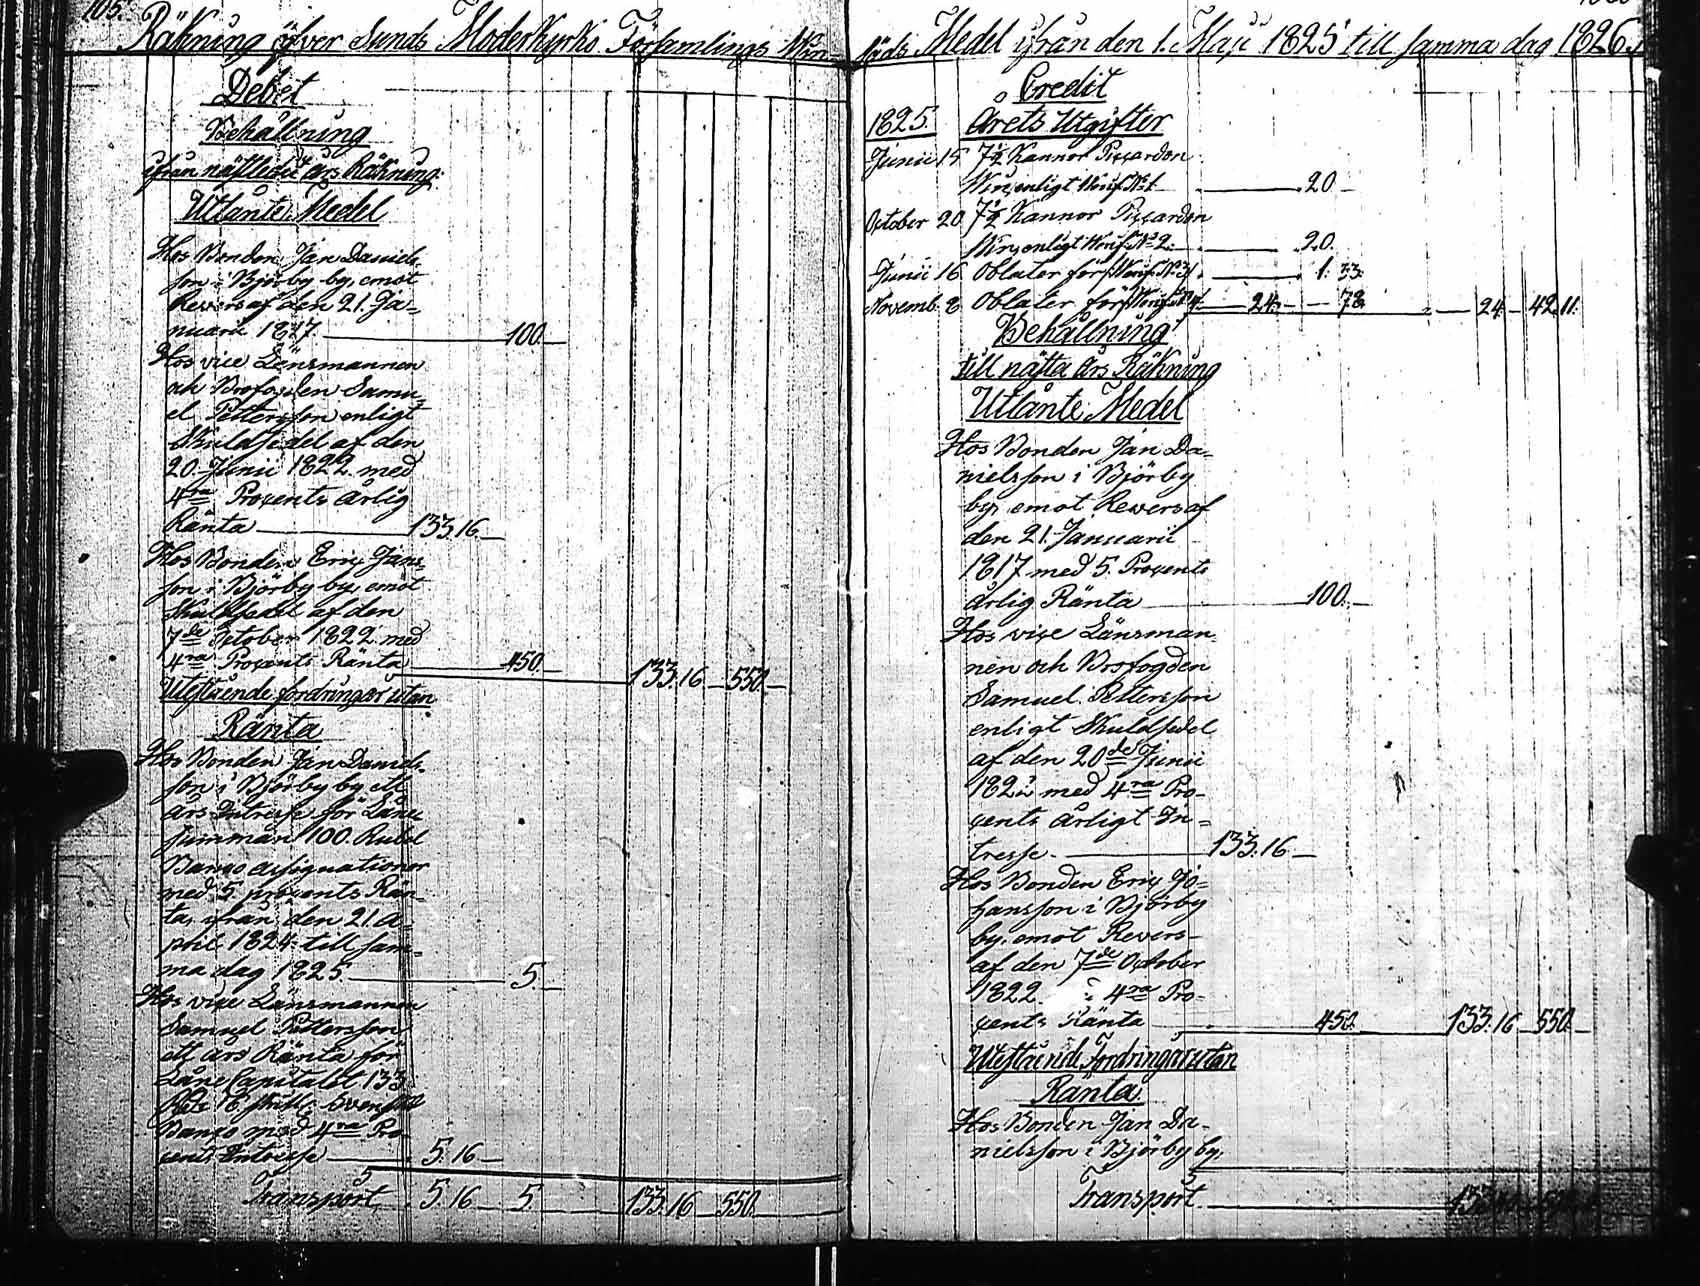 105.
Räkning öfver Sunds Moderkyrko Församlings Win-
Debet
Behållning
ifrån nästledit års Räkning.
Utlånte Medel
Hos Bonden Jan Daniels-
son i Björby by, emot
Revers af den 21. Ja-
nuarii 1817 100.
Hos vice Länsmannen
och Brofogden Samu-
el Pettersson enligt
Skuldsedel af den
20. Junii 1822. med
4ra Procents årlig
Ränta 133.16
Hos Bonden Eric Jans-
son i Björby by, emot
Skuldsedel af den
7de October 1822 med
4ra Procents Ränta 450. 133.16 550.
Utestående fordringar utan
Ränta
Hos Bonden Jan Daniels-
son i Björby by ett
års Intresse för Låne
summan 100. Rubel
Banco assignationer
med 5. procents Rän-
ta, ifrån den 21. A-
pril 1824. till sam-
ma dag 1825. 5.
Hos vice Länsmannen
Samuel Pettersson
ett års Ränta för
Låne Capitalet 133
Rdr 16 skill. Svenskt
Banco med 4ra Pro-
cents Intresse 5.16
Transport 5.16 5. 133.16 550.
säds Medel ifrån den 1. Maji 1825 till samma dag 1826.
Credit
1825. Årets Utgifter
Junii 15 7½ Kannor Piccardon
Win, enligt Verif. No 1. 20
October 20 7½ Kannor Piccardon
Win, enligt Verif. No 2. 20.
Junii 16. Oblater för, Verif. No 3. 1. 33.
Novemb. 8 Oblater för, Verif. No 4. 24. 78. 24. 42.11.
Behållning
till nästa års Räkning
Utlånte Medel
Hos Bonden Jan Da-
nielsson i Björby
by, emot Revers af
den 21. Januarii
1817 med 5. Procents
årlig Ränta 100.
Hos vice Länsman-
nen och Brofogden
Samuel Pettersson
enligt Skuldsedel
af den 20de Junii
1822 med 4ra Pro-
cents årligt In-
tresse 133.16
Hos Bonden Eric Jo-
hansson i Björby
by, emot Revers
af den 7de October
1822 4ra Pro-
cents Ränta 450. 133.16 550.
Utestående Fordringar utan
Ränta
Hos Bonden Jan Da-
nielsson i Björby by,
Transport